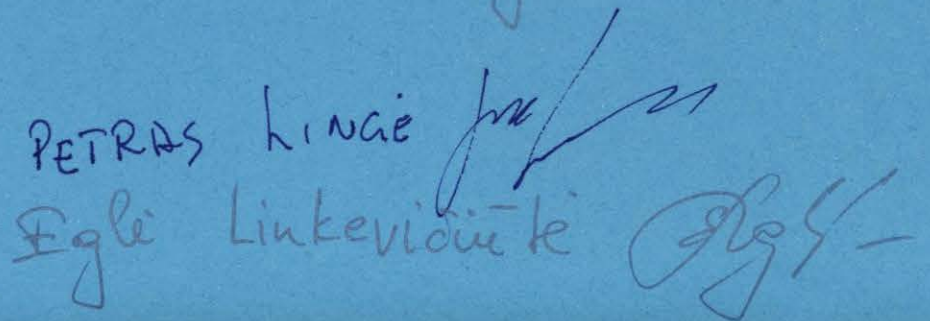 PETRAS LINGĖ
Eglė Linkevičiūtė